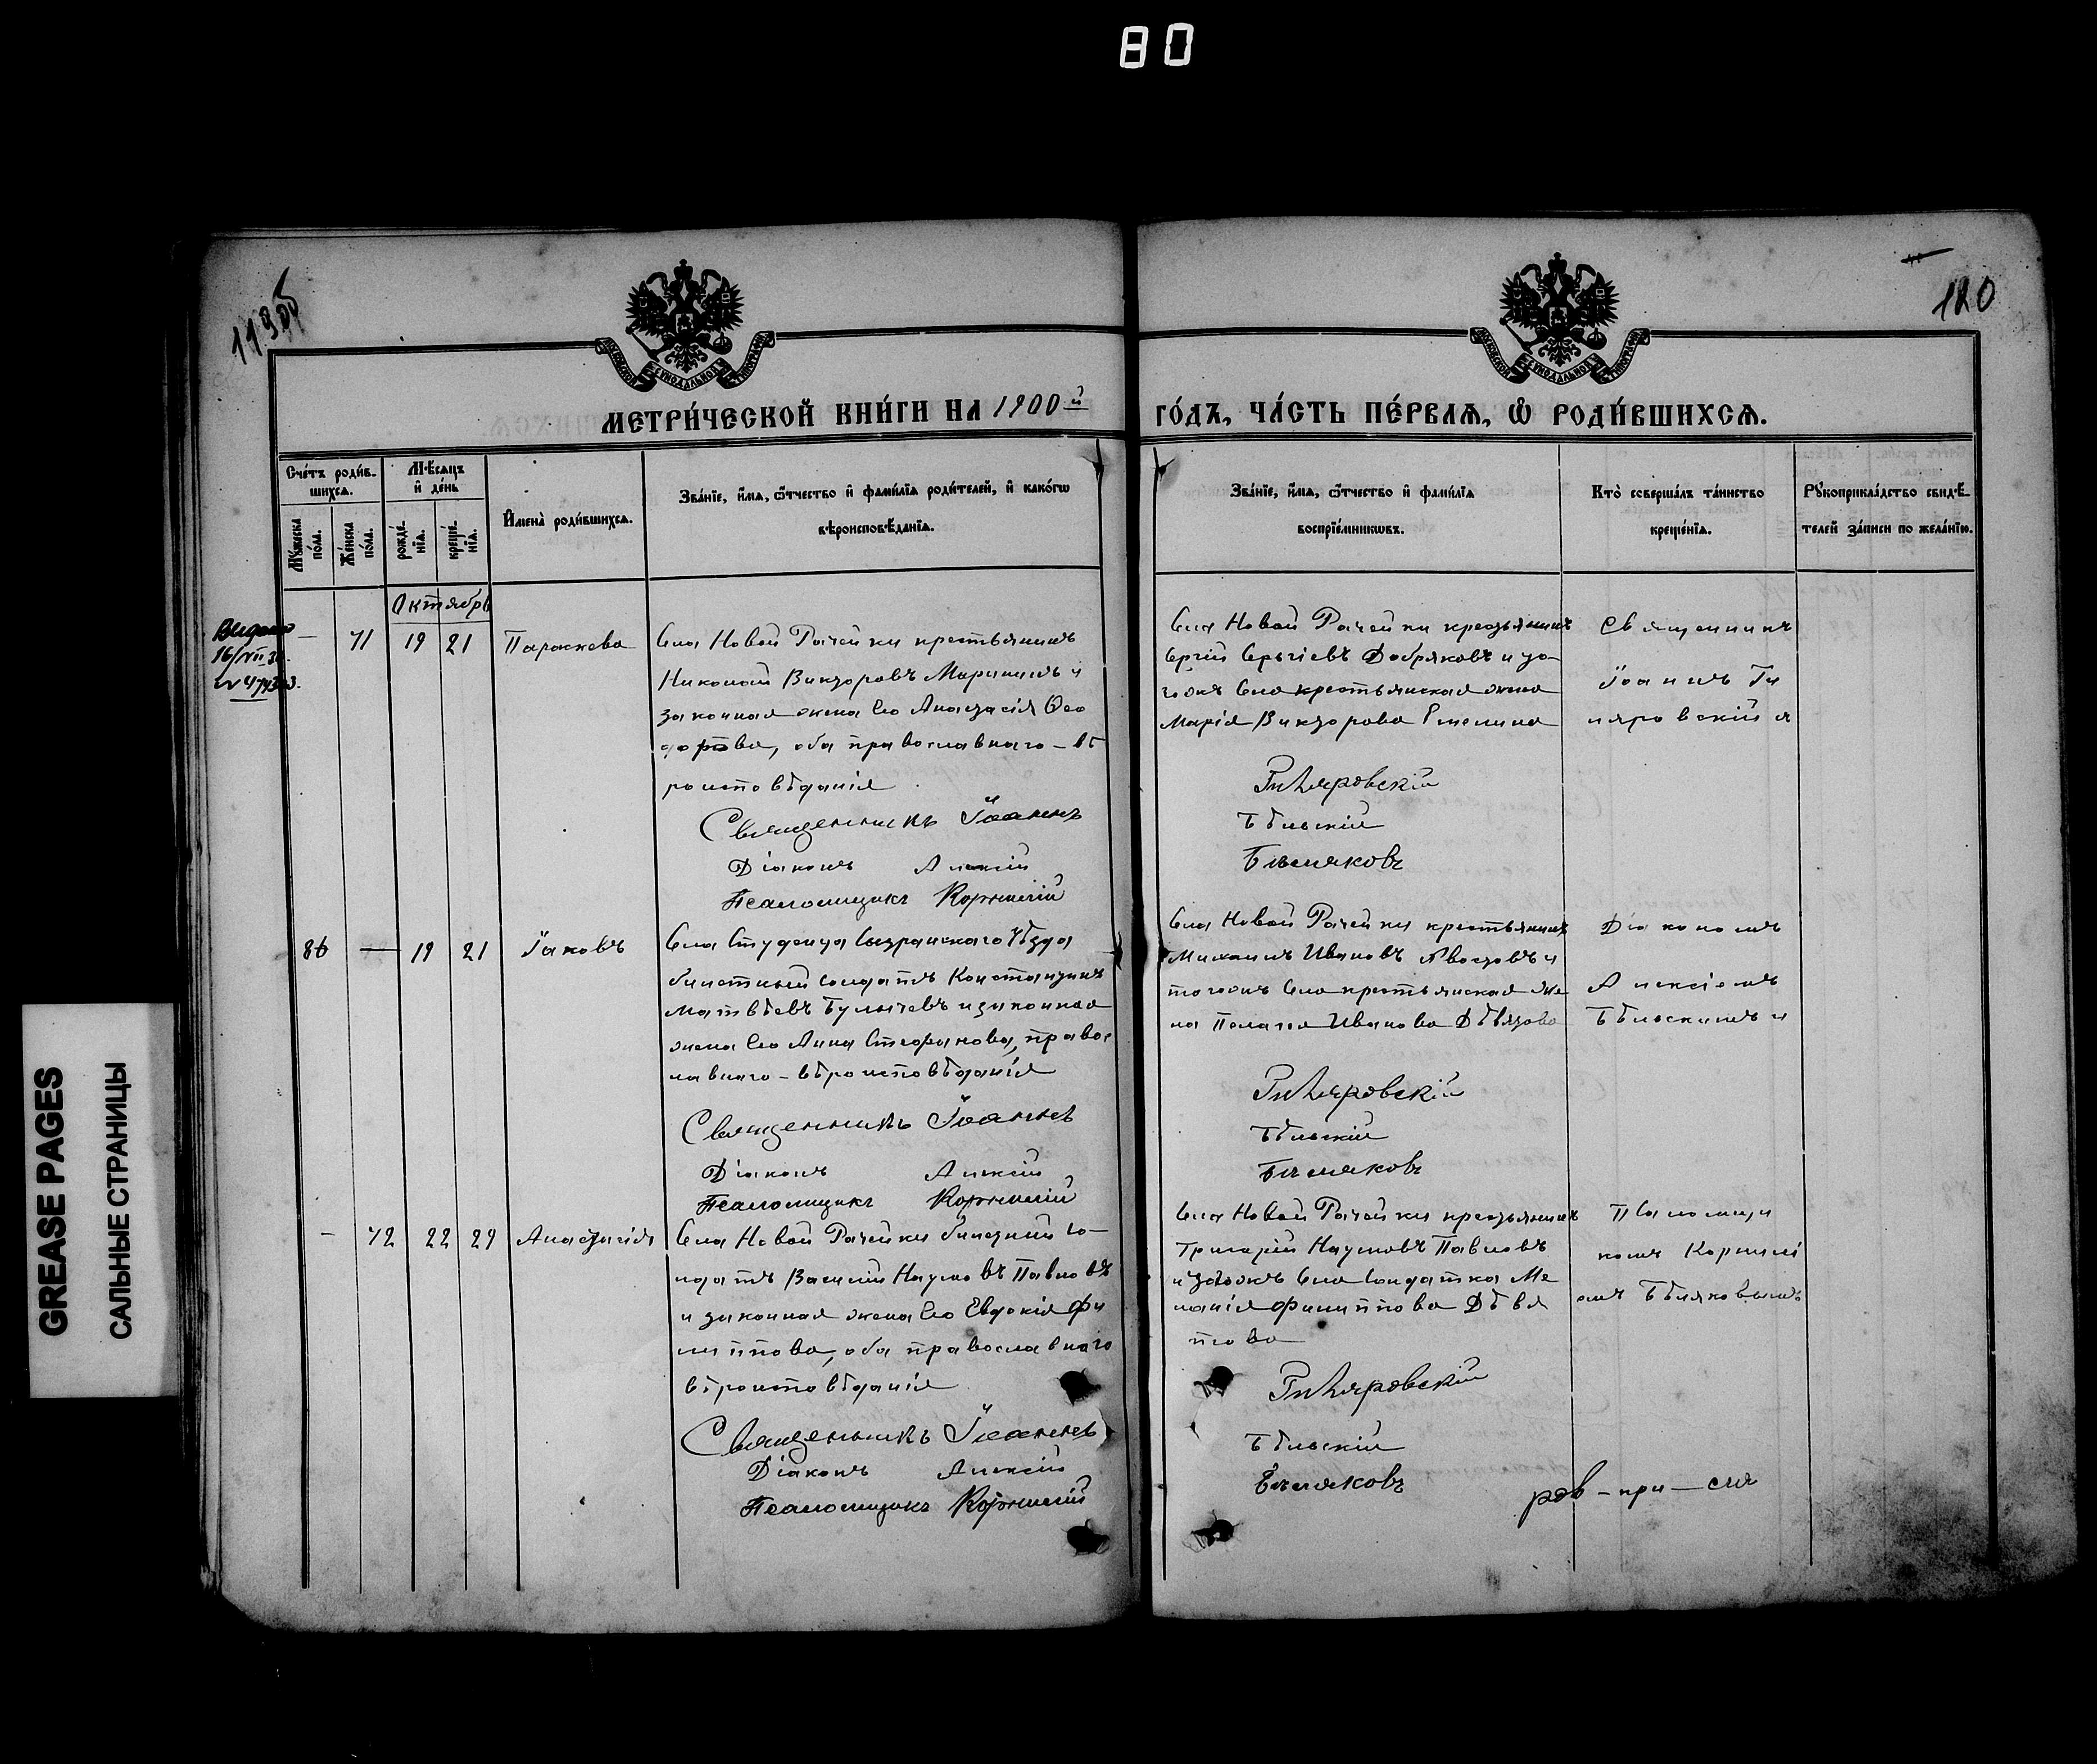 80
119об
120
МЕТРИ́ЧЕСКОЙ КНИ́ГИ НА 1900й
ГО́ДЪ, ЧА́СТЬ ПЕ́РВАѦ, Ѡ РОДИ́ВШИХСѦ.
Сче́тъ роди́в-
шихсѧ.
Мѣ́сѧцъ
и҆ де́нь
Мꙋ́жеска
по́ла.
Же́нска
по́ла.
рожде́-
нїѧ.
креще́-
нїѧ.
И҆мена̀ роди́вшихсѧ.
Зва́нїе, и҆́мѧ, ѻ҆́тчество и҆ фами́лїѧ роди́телей, и҆ како́гѡ
вѣроисповѣ́данїѧ.
Зва́нїе, и҆́мѧ, ѻ҆́тчество и҆ фами́лїѧ
воспрїе́мникѡвъ.
Кто̀ соверша́лъ та́инство
креще́нїѧ.
Рꙋкоприкла́дство свидѣ́-
телей за́писи по жела́нїю.
Октябрь
Выдано
16/VII
— 71 19 21 Параскева
Села Новой Рачейки крестьянинъ
Николай Викторовъ Марининъ и
законная жена его Анастасія Ѳео
дорова, оба православнаго – вѣ
роисповѣданія
Священникъ Іоаннъ
Діаконъ Алексій
Псаломщикъ Корнилій
Села Новой Рачейки крестьянинъ
Сергій Сергіевъ Добряковъ и то-
гожъ села крестьянская жена
Марія Викторова
Гиляровскій
Бѣльскій
Бѣляковъ
Священникъ
Іоаннъ Ги
ляровскій и
86 — 19 21 Іаковъ
Села Студенца Сызранскаго уѣзда
билетный солдатъ Константинъ
Матвѣевъ Булычевъ и законная
жена его Анна Стефанова, правос
лавнаго – вѣроисповѣданія
Священникъ Іоаннъ
Діаконъ Алексій
Псаломщикъ Корнилій
Села Новой Рачейки крестьянинъ
Михаилъ Ивановъ и
тогожъ села крестьянская же
на Пелагія Иванова Дѣвятова
Гиляровскій
Бѣльскій
Бѣляковъ
Діакономъ
Алексіемъ
Бѣльскимъ и
— 72 22 29 Анастасія
Села Новой Рачейки билетный со-
лдатъ Василій Наумовъ Павловъ
и законная жена его Евдокія Фи
липпова, оба православнаго
вѣроисповѣданія
Священникъ Іоаннъ
Діаконъ Алексій
Псаломщикъ Корнилій
Села Новой Рачейки крестьянинъ
Григорій Наумовъ Павловъ
и тогожъ села солдатка Ме
ланія Филиппова Дѣвя
това
Гиляровскій
Бѣльскій
Бѣляковъ
Псаломщи
комъ Корнилі
емъ Бѣляковымъ
ров – при – ся
GREASE PAGES
САЛЬНЫЕ СТРАНИЦЫ